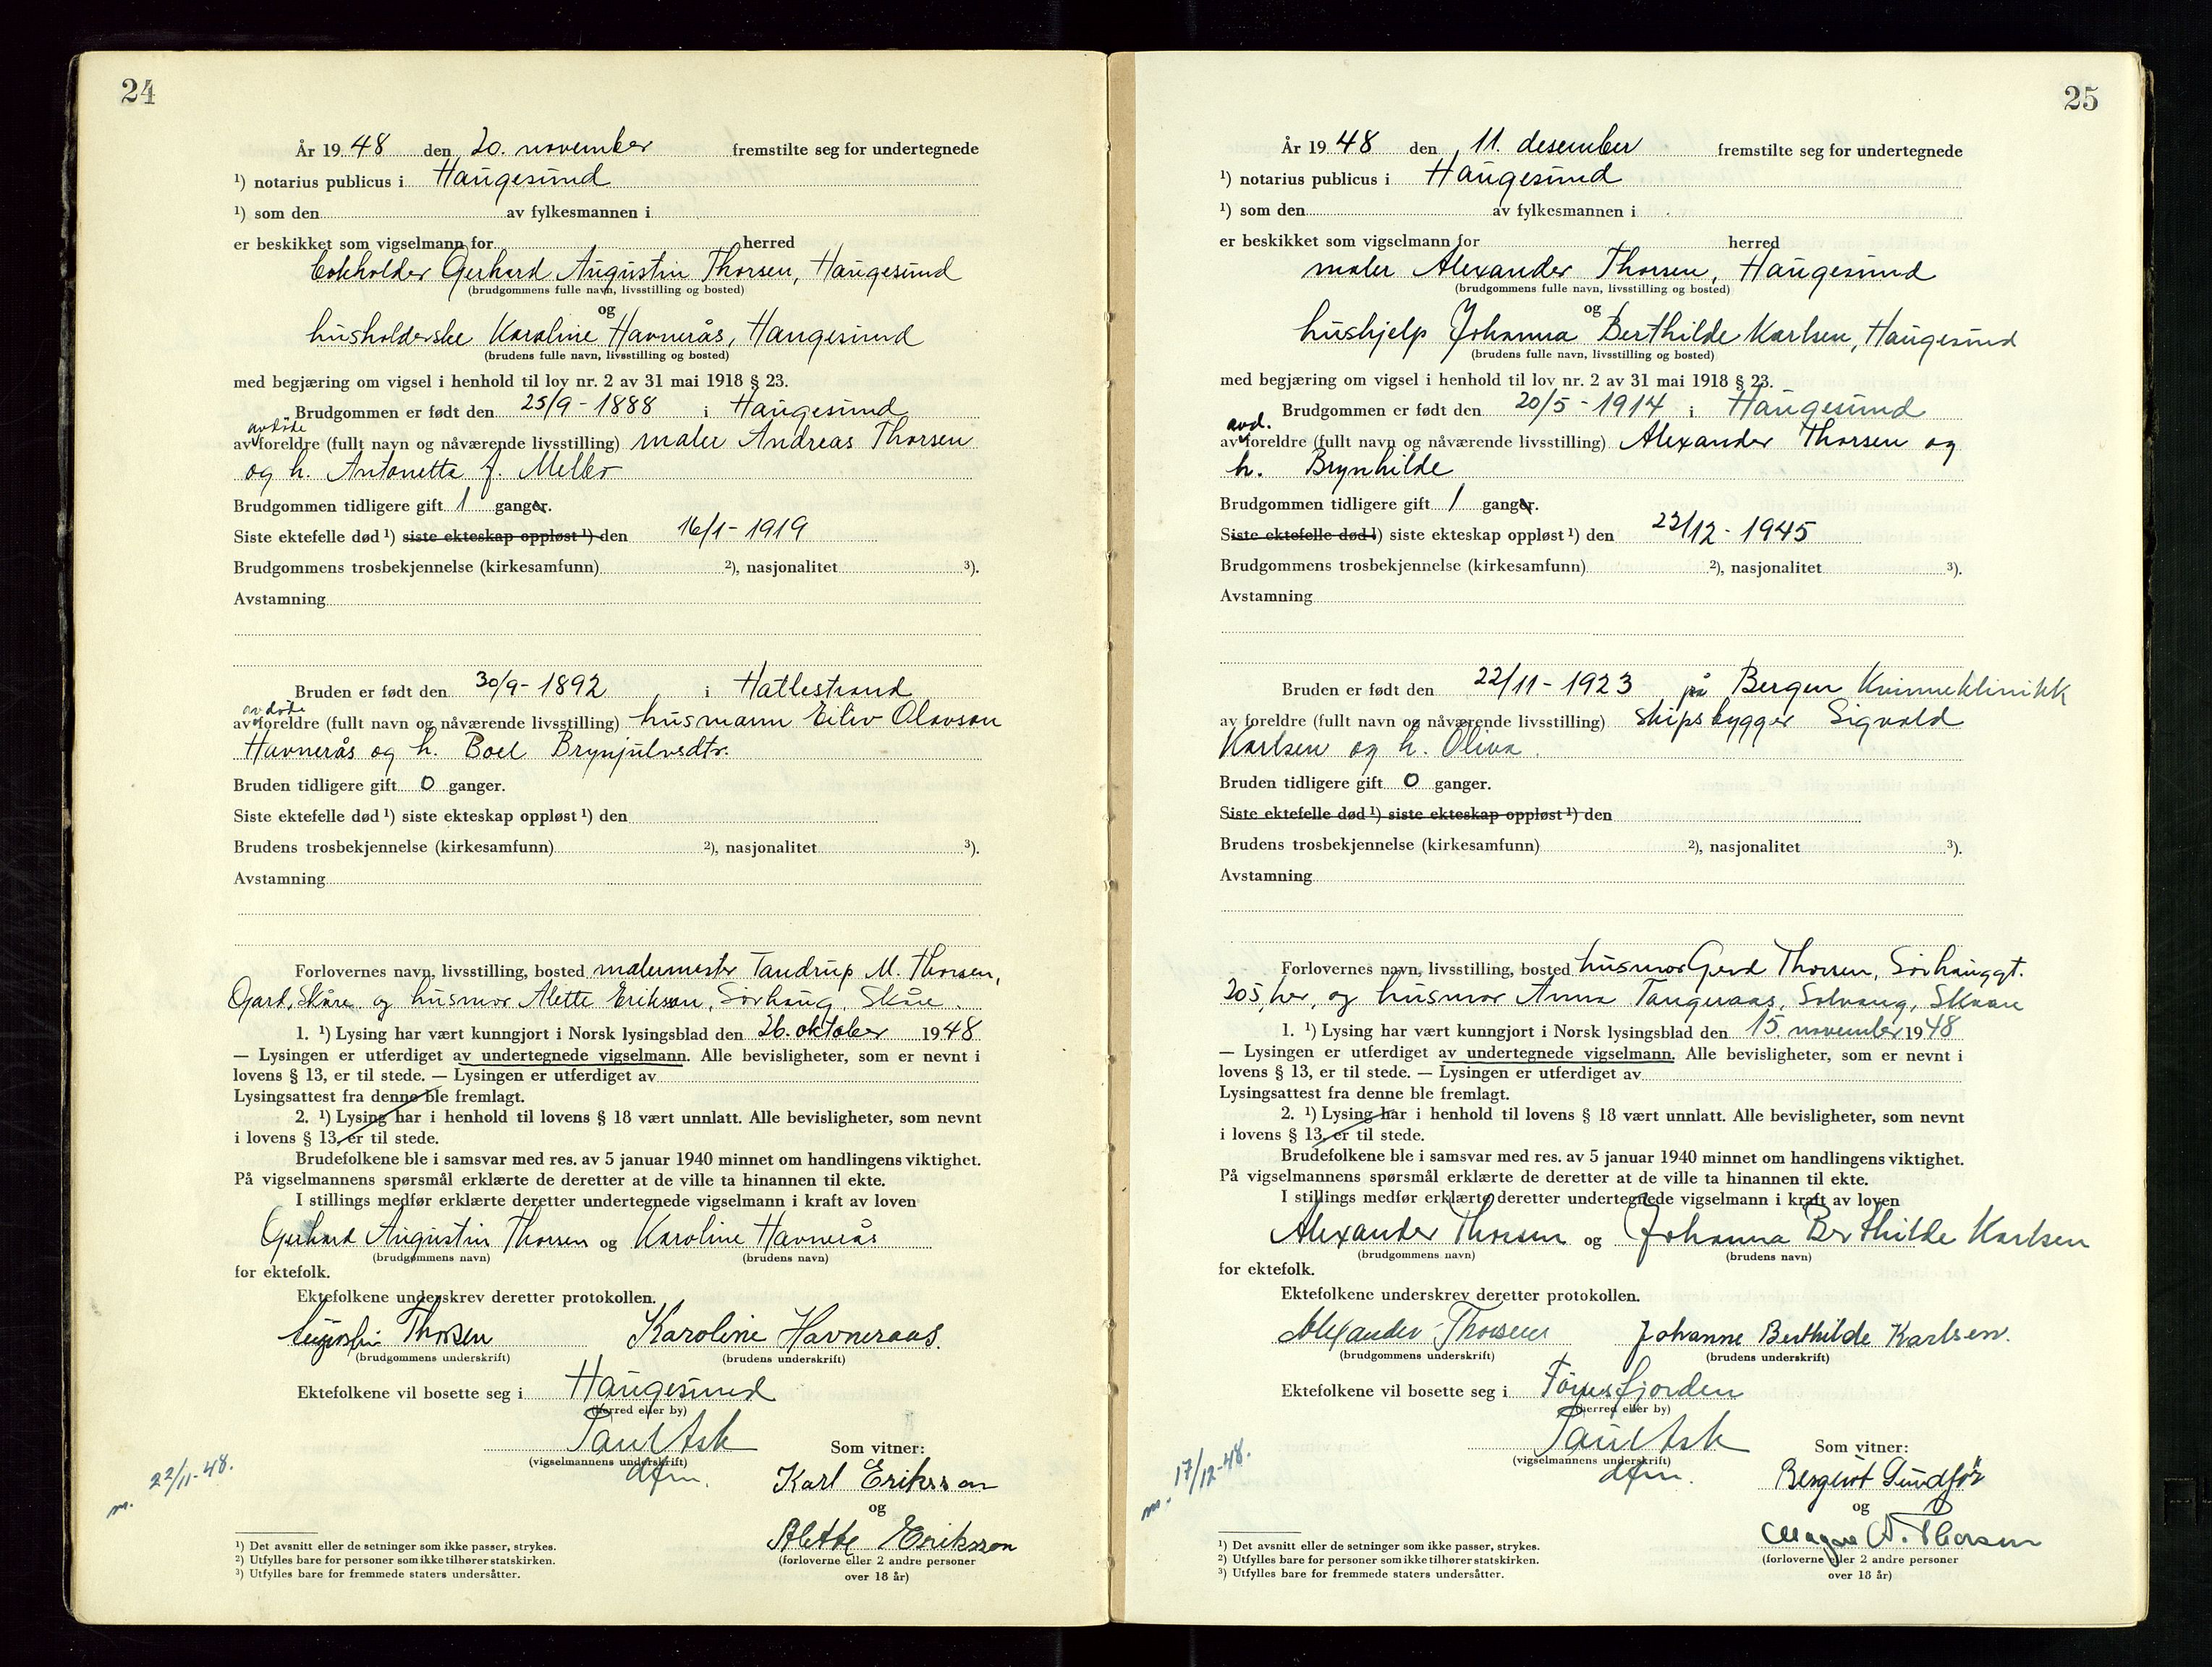 24
År 1948 den 20. november fremstilte seg for undertegnede
1) notarius publicus i Haugesund
1) som den av fylkesmannen i
er beskikket som vigselmann for herred
Gerhard Augustin Thorsen, Haugesund
(brudgommens fulle navn, livsstilling og bosted)
og
husholderske Karoline Havnerås, Haugesund
(brudens fulle navn, livsstilling og bosted)
med begjæring om vigsel i henhold til lov nr. 2 av 31 mai 1918 § 23.
Brudgommen er født den 25/9 - 1888 i Haugesund
avdøde
av foreldre (fullt navn og nåværende livsstilling) maler Andreas Thorsen
og h. Antonette f. Melbø
Brudgommen tidligere gift 1 ganger.
Siste ektefelle død 1) siste ekteskap oppløst 1) den 16/1 - 1919
Brudgommens trosbekjennelse (kirkesamfunn) 2), nasjonalitet 3).
Avstamning
Bruden er født den 30/9 - 1892, i Hatlestrand
avdøde
av foreldre (fullt navn og nåværende livsstilling) husmann Eiliv Olavson
Havnerås og h. Boel Brynjulvsdtr.
Bruden tidligere gift 0 ganger.
Siste ektefelle død 1) siste ekteskap oppløst 1) den
Brudens trosbekjennelse (kirkesamfunn) 2), nasjonalitet 3).
Avstamning
Forlovernes navn, livsstilling, bosted malermester Tandrup M. Thorsen,
Gard, Skåre og husmor Alette Erikson, Sørhaug, Skåre.
1. 1) Lysing har vært kunngjort i Norsk lysingsblad den 26. oktober 1948
— Lysingen er utferdiget av undertegnede vigselmann. Alle bevisligheter, som er nevnt i
lovens § 13, er til stede. — Lysingen er utferdiget av
Lysingsattest fra denne ble fremlagt.
2. 1) Lysing har i henhold til lovens § 18 vært unnlatt. Alle bevisligheter, som nevnt
i lovens § 13, er til stede.
Brudefolkene ble i samsvar med res. av 5 januar 1940 minnet om handlingens viktighet.
På vigselmannens spørsmål erklærte de deretter at de ville ta hinannen til ekte.
I stillings medfør erklærte deretter undertegnede vigselmann i kraft av loven
Gerhard Augustin Thorsen og Karoline Havnerås
(brudgommens navn) (brudens navn)
for ektefolk.
Ektefolkene underskrev deretter protokollen.
Augustin Thorsen Karoline Havneraas.
(brudgommens underskrift) (brudens underskrift)
Ektefolkene vil bosette seg i Haugesund
(herred eller by)
Paul Ask
(vigselmannens underskrift)
dfm.
Som vitner:
Karl Eriksson
og
Alette Eriksson
(forloverne eller 2 andre personer
over 18 år)
m. 22/11-48.
1) Det avsnitt eller de setninger som ikke passer, strykes.
2) Utfylles bare for personer som ikke tilhører statskirken.
3) Utfylles bare for fremmede staters undersåtter.
25
År 1948 den 11. desember fremstilte seg for undertegnede
1) notarius publicus i Haugesund
1) som den av fylkesmannen i
er beskikket som vigselmann for herred
maler Alexander Thorsen, Haugesund
(brudgommens fulle navn, livsstilling og bosted)
og
hushjelp Johanna Berthilde Karlsen, Haugesund
(brudens fulle navn, livsstilling og bosted)
med begjæring om vigsel i henhold til lov nr. 2 av 31 mai 1918 § 23.
Brudgommen er født den 20/5 - 1914 i Haugesund
avd.
av foreldre (fullt navn og nåværende livsstilling) Alexander Thorsen og
h. Brynhilde
Brudgommen tidligere gift 1 ganger.
Siste ektefelle død 1) siste ekteskap oppløst 1) den 22/12 - 1945
Brudgommens trosbekjennelse (kirkesamfunn) 2), nasjonalitet 3).
Avstamning
Bruden er født den 22/11 - 1923 på Bergen Kvinneklinikk
av foreldre (fullt navn og nåværende livsstilling) skipsbygger Sigvald
Karlsen og h. Oliva.
Bruden tidligere gift 0 ganger.
Siste ektefelle død 1) siste ekteskap oppløst 1) den
Brudens trosbekjennelse (kirkesamfunn) 2), nasjonalitet 3).
Avstamning
Forlovernes navn, livsstilling, bosted husmor Gerd Thorsen, Sørhauggt.
205, her, og husmor Anna Tangeraas, Solvang, Skaare
1. 1) Lysing har vært kunngjort i Norsk lysingsblad den 15. november 1948
— Lysingen er utferdiget av undertegnede vigselmann. Alle bevisligheter, som er nevnt i
lovens § 13, er til stede. — Lysingen er utferdiget av
Lysingsattest fra denne ble fremlagt.
2. 1) Lysing har i henhold til lovens § 18 vært unnlatt. Alle bevisligheter, som nevnt
i lovens § 13, er til stede.
Brudefolkene ble i samsvar med res. av 5 januar 1940 minnet om handlingens viktighet.
På vigselmannens spørsmål erklærte de deretter at de ville ta hinannen til ekte.
I stillings medfør erklærte deretter undertegnede vigselmann i kraft av loven
Alexander Thorsen og Johanna Berthilde Karlsen
(brudgommens navn) (brudens navn)
for ektefolk.
Ektefolkene underskrev deretter protokollen.
Alexander Thorsen Johanne Berthilde Karlsen.
(brudgommens underskrift) (brudens underskrift)
Ektefolkene vil bosette seg i Førresfjorden
(herred eller by)
Paul Ask
(vigselmannens underskrift)
dfm.
Som vitner:
Bergliot
og
Magne A. Thorsen
(forloverne eller 2 andre personer
over 18 år)
m. 17/12-48.
1) Det avsnitt eller de setninger som ikke passer, strykes.
2) Utfylles bare for personer som ikke tilhører statskirken.
3) Utfylles bare for fremmede staters undersåtter.